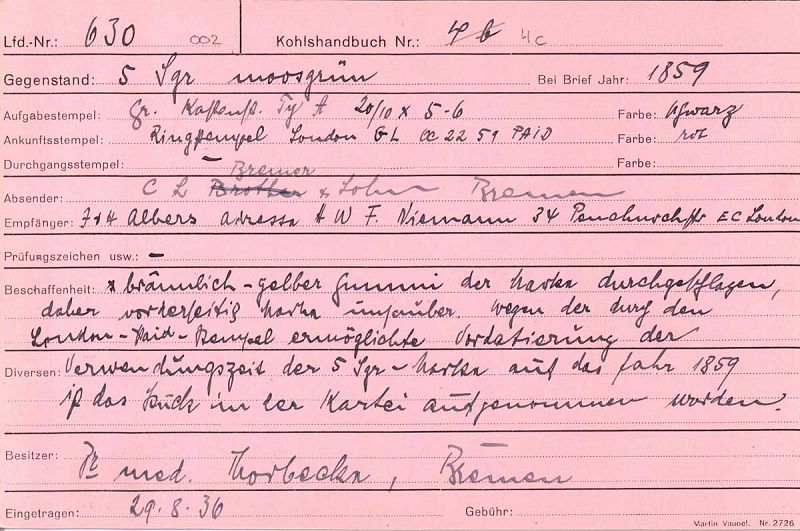 Lfd.-Nr.: 630 002 Kohlshandbuch Nr.: 4b 4c
Gegenstand: 5 Sgr moosgrün Bei Brief Jahr: 1859
Aufgabestempel: gr. Kastenst. Ty A 20/10 x 5-6 Farbe: schwarz
Ankunftsstempel: Ringstempel London GL OC 22 59 PAID Farbe: rot
Durchgangsstempel: – Farbe:
Bremer
Absender: C L Brother & Sohn Bremen
Empfänger: J & H Albers adresse H W F. Niemann 34 Fenchurchstr EC London
Prüfungszeichen usw.: –
Beschaffenheit: bräunlich-gelber Gummi der Marke durchgeschlagen,
daher vorderseitig Marke unsauber. Wegen der durch den
London-Paid-Stempel ermöglichte Vordatierung der
Diversen: Verwendungszeit der 5 Sgr-Marke auf das Jahr 1859
ist das Stück in der Kartei aufgenommen worden.
Besitzer: Dr med. Thorbecke, Bremen
Eingetragen: 29.8.36 Gebühr:
Martin Vaune!. Nr. 2726